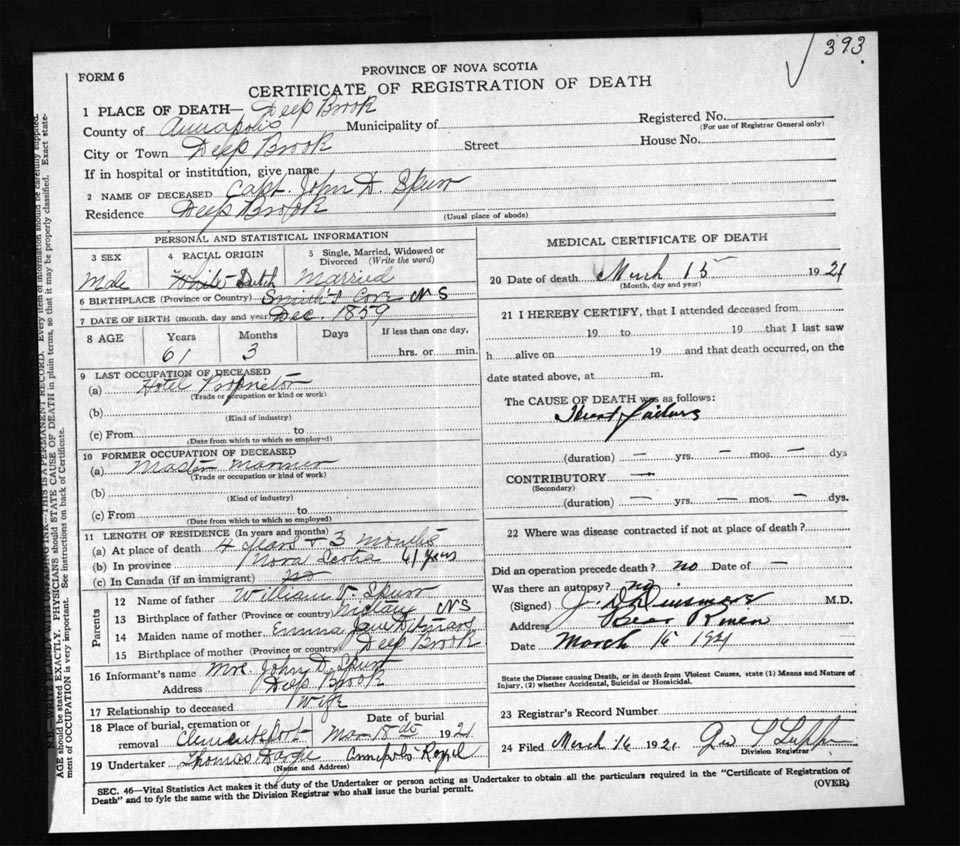 393
FORM 6
PROVINCE OF NOVA SCOTIA
CERTIFICATE OF REGISTRATION OF DEATH
1 PLACE OF DEATH— Deep Brook
County of Annapolis Municipality of Registered No.
(For use of Registrar General only)
City or Town Deep Brook Street House No.
If in hospital or institution, give name
2 NAME OF DECEASED Capt. John D. Spurr
Residence Deep Brook
(Usual place of abode)
PERSONAL AND STATISTICAL INFORMATION
3 SEX 4 RACIAL ORIGIN 5 Single, Married, Widowed or
Divorced (Write the word)
Male White Dutch Married
6 BIRTHPLACE (Province or Country) Smith's Cove NS
7 DATE OF BIRTH (month, day and year) Dec. 1859
8 AGE Years Months Days If less than one day,
61 3 hrs. or min.
9 LAST OCCUPATION OF DECEASED
(a) Hotel Proprietor
(Trade or occupation or kind or work)
(b)
(Kind of industry)
(c) From to
(Date from which to which so employed)
10 FORMER OCCUPATION OF DECEASED
(a) Master Mariner
(Trade or occupation or kind of work)
(b)
(Kind of industry)
(c) From to
(Date from which to which so employed)
11 LENGTH OF RESIDENCE (In years and months)
(a) At place of death 4 years + 3 months
(b) In province Nova Scotia 61 years
(c) In Canada (if an immigrant)
Parents
12 Name of father William V. Spurr
13 Birthplace of father (Province or country) NS
14 Maiden name of mother Emma Jane Ditmars
15 Birthplace of mother (Province or country) Deep Brook
16 Informant's name Mrs. John D. Spurr
Address Deep Brook
17 Relationship to deceased Wife
18 Place of burial, cremation or Date of burial
removal Clementsport Mar 18th 1921
19 Undertaker Thomas Annapolis Royal
(Name and Address)
MEDICAL CERTIFICATE OF DEATH
20 Date of death March 15 1921
(Month, day and year)
21 I HEREBY CERTIFY, that I attended deceased from
19 to 19 that I last saw
h alive on 19 and that death occurred, on the
date stated above, at m.
The CAUSE OF DEATH was as follows:
Heart failure
(duration) — yrs. — mos. — dys
CONTRIBUTORY —
(Secondary)
(duration) — yrs. — mos. — dys.
22 Where was disease contracted if not at place of death?
Did an operation precede death? no Date of —
Was there an autopsy? no
(Signed) M.D.
Address Bear River
Date March 16 1921
State the Disease causing Death, or in death from Violent Causes, state (1) Means and Nature of
Injury, (2) whether Accidental, Suicidal or Homicidal.
23 Registrar's Record Number
24 Filed March 16 1921 Geo
Division Registrar
SEC. 46—Vital Statistics Act makes it the duty of the Undertaker or person acting as Undertaker to obtain all the particulars required in the "Certificate of Registration of
Death" and to fyle the same with the Division Registrar who shall issue the burial permit.
(OVER)
N.B.—WRITE PLAINLY WITH UNFADING INK—THIS IS A PERMANENT RECORD. Every item of information should be carefully supplied.
AGE should be stated EXACTLY. PHYSICIANS should STATE CAUSE OF DEATH in plain terms, so that it may be properly classified. Exact state-
ment of OCCUPATION is very important. See instructions on back of Certificate.